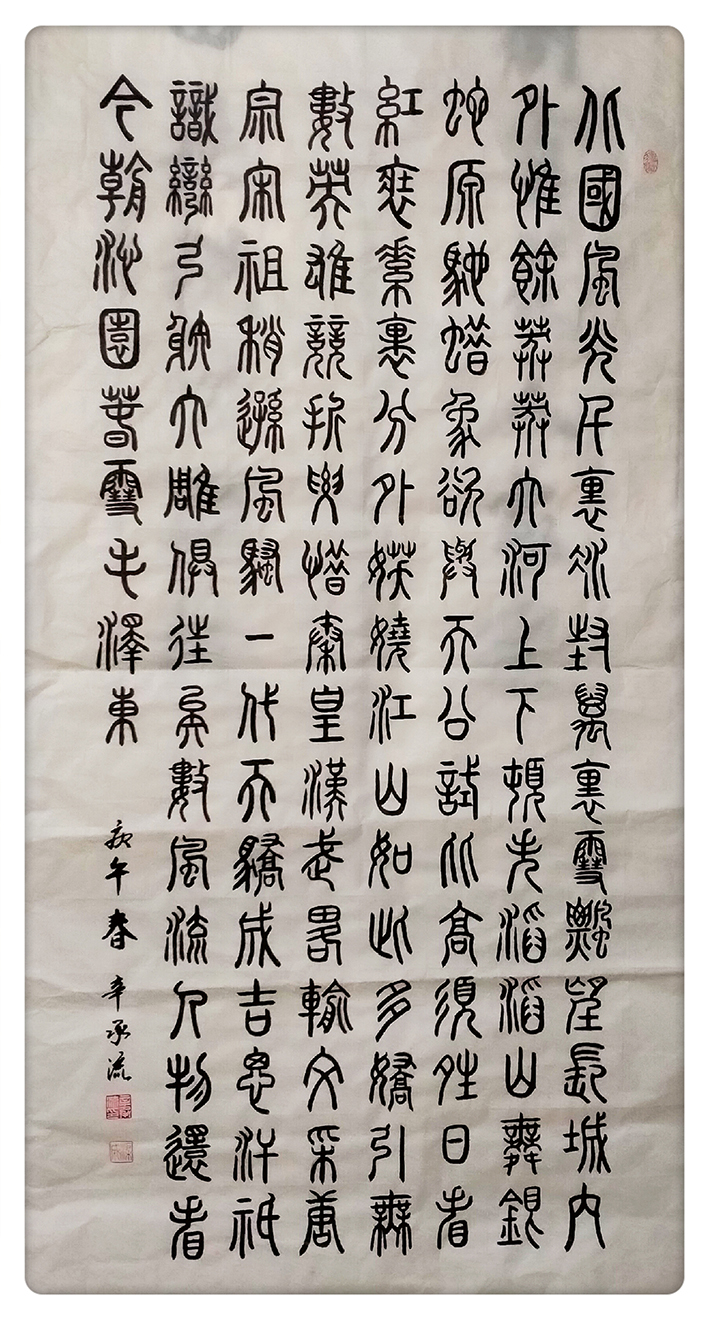 北國風光千裏冰封萬裏雪飄望長城內
外惟餘莽莽大河上下頓失滔滔山舞銀
蛇原馳蜡象欲與天公試比高須晴日看
紅裝素裹分外妖嬈江山如此多嬌引無
數英雄競折腰惜秦皇漢武略輸文采唐
宗宋祖稍遜風騷一代天驕成吉思汗祇
識彎弓射大雕俱往矣數風流人物還看
今朝沁園春雪毛澤東
庚午春 辛承流